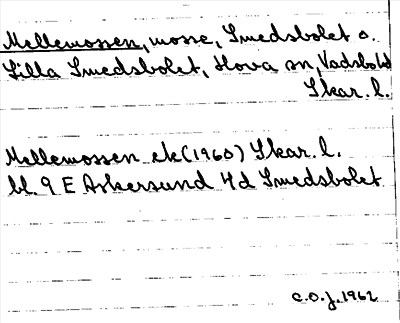 Mellemossen, mosse, Smedsbolet o.
Lilla Smedsbolet, Hova sn, Vadsbo hd
Skar. l.
Mellemossen ek (1960) Skar. l.
bl. 9 E Askersund 4d Smedsbolet
C.O.J. 1962